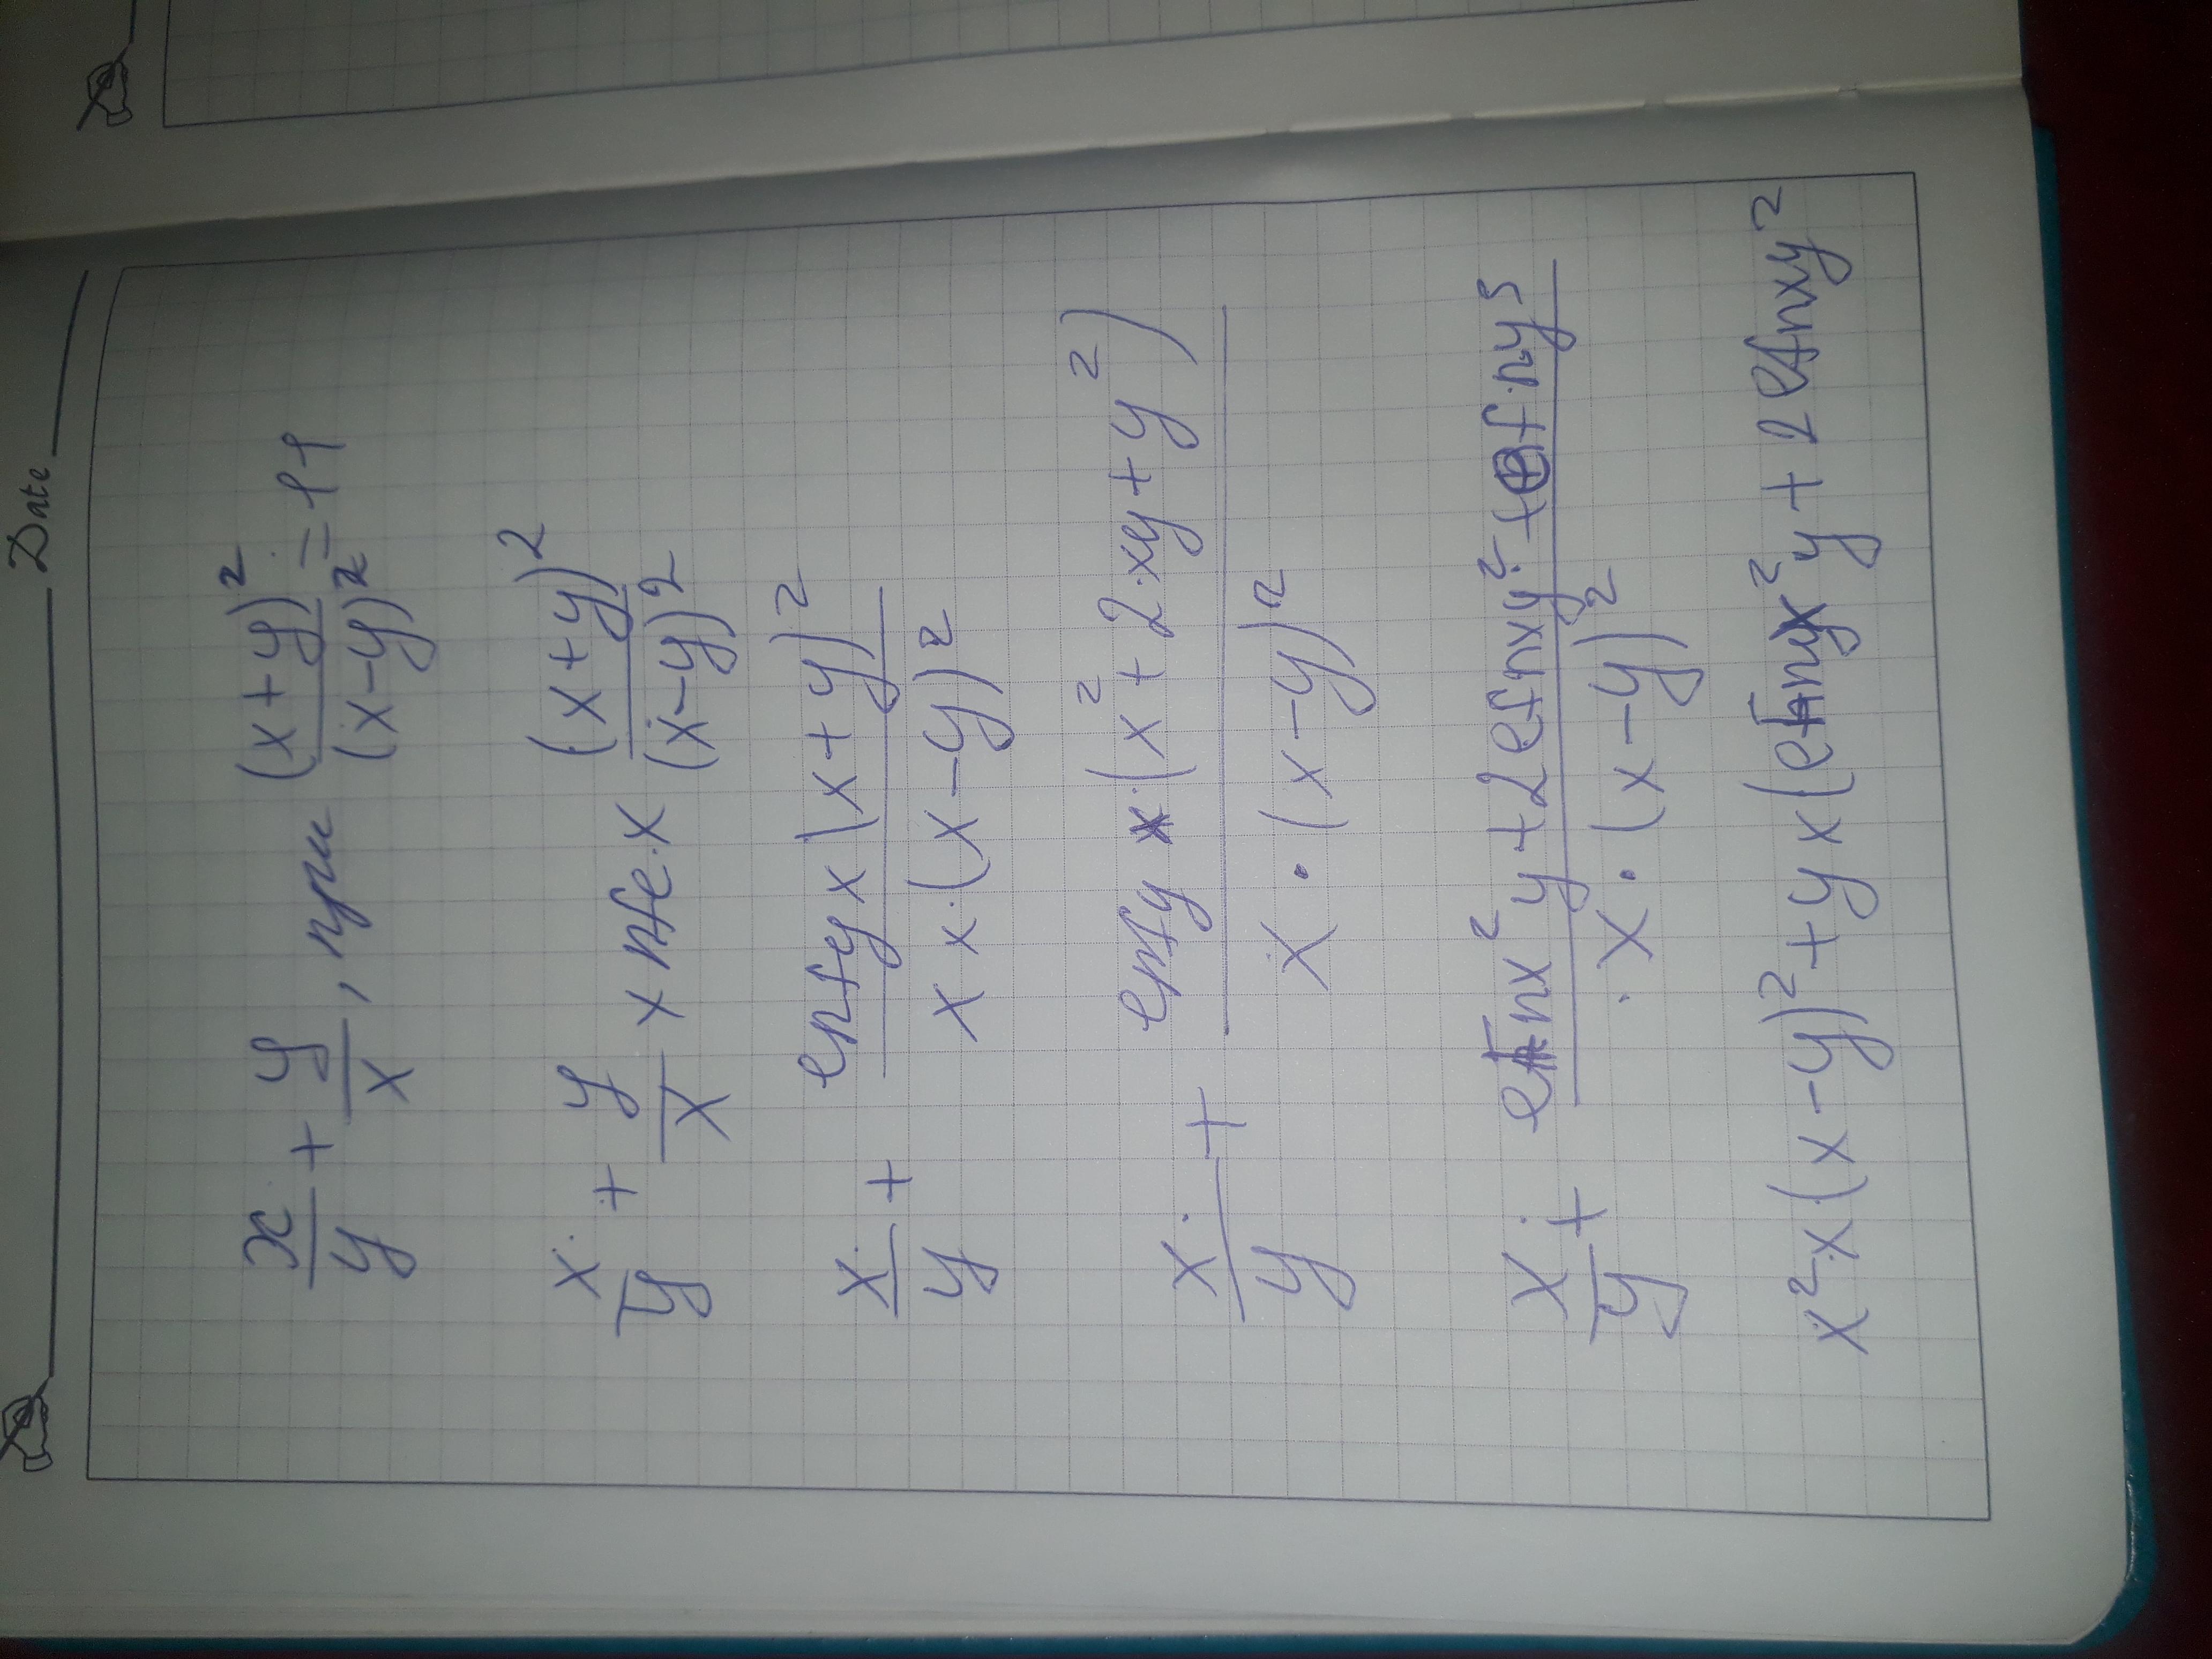 Date
x/y + y/x, при (x+y)²/(x-y)² = 11
x/y + y/x x nfe·x (x+y)²/(x-y)²
x/y + enfyx(x+y)²/x x·(x-y)²
x/y + enfyx·(x²+2·xy+y²)/x·(x-y)²
x/y + efnx²y+2efnxy²+efny³/x·(x-y)²
x²·x(x-y)²+yx(efnyx²y+2efnxy²